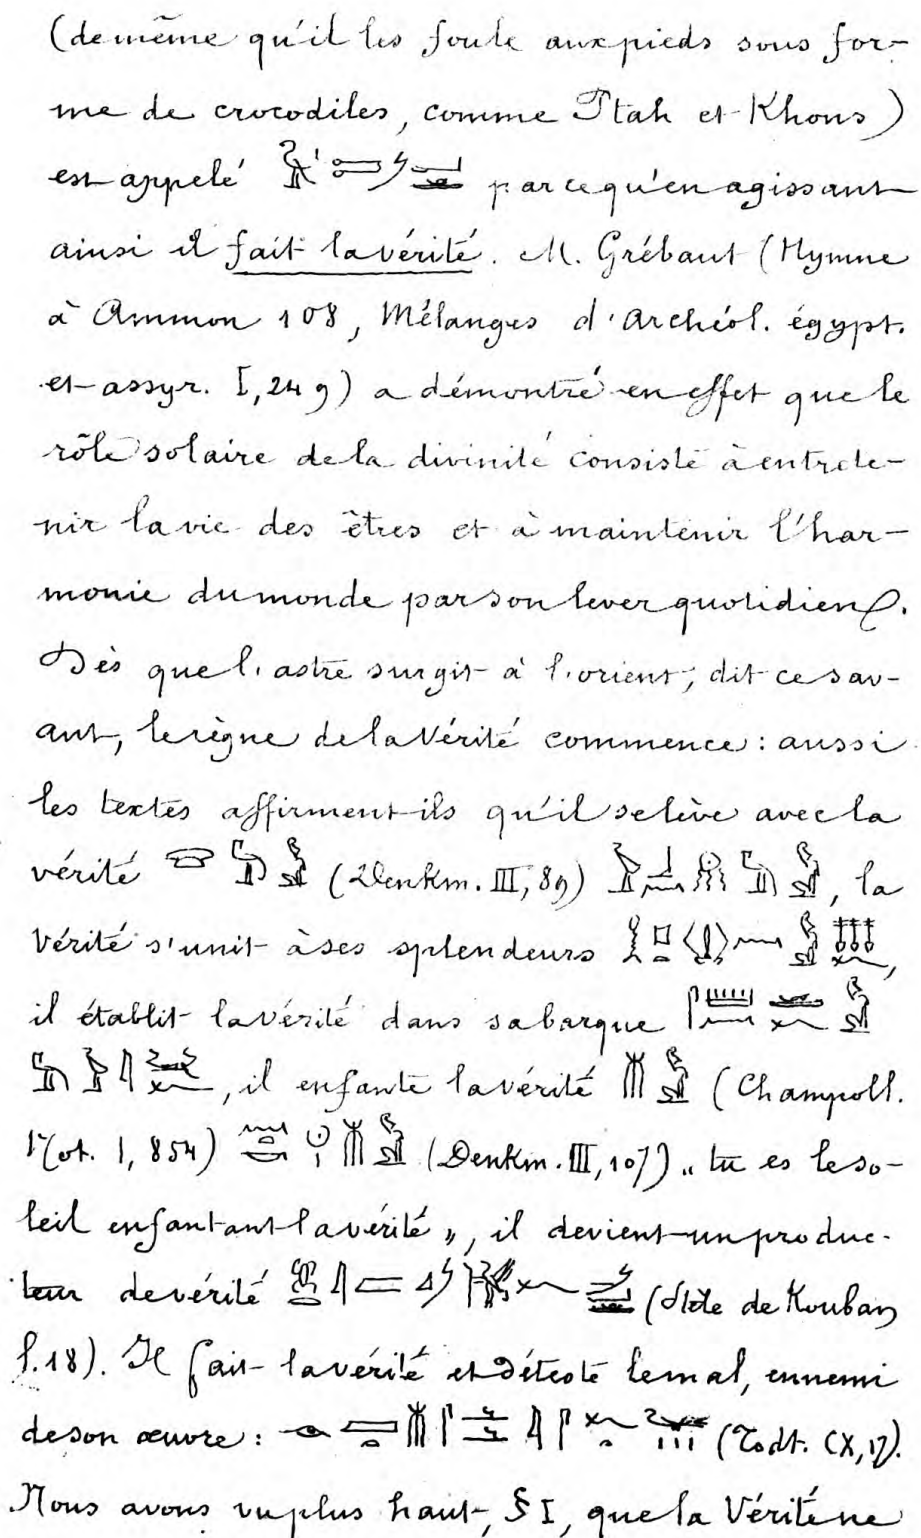 (de même qu'il les foule aux pieds sous for-
me de crocodiles, comme Ptah et Khons)
est appelé parce qu'en agissant
ainsi il fait la vérité. M. Grébaut (Hymne
à Ammon 108, Mélanges d'Archéol. égypt.
et assyr. I, 249) a démontré en effet que le
rôle solaire de la divinité consiste à entrete-
nir la vie des êtres et à maintenir l'har-
monie du monde par son lever quotidien.
Dès que l'astre surgit à l'orient, dit ce sav-
ant, le règne de la Vérité commence : aussi
les textes affirment-ils qu'il se lève avec la
vérité (Denkm. III, 89) , la
Vérité s'unit à ses splendeurs ,
il établit la vérité dans sa barque
, il enfante la vérité (Champoll.
Not. I, 854) (Denkm. III, 107) „ tu es le so-
leil enfantant la vérité „, il devient un produc-
teur de vérité (Stèle de Kouban
l. 18). Il fait la vérité et déteste le mal, ennemi
de son œuvre : (Todt. CX, 17).
Nous avons vu plus haut, § I, que la Vérité ne